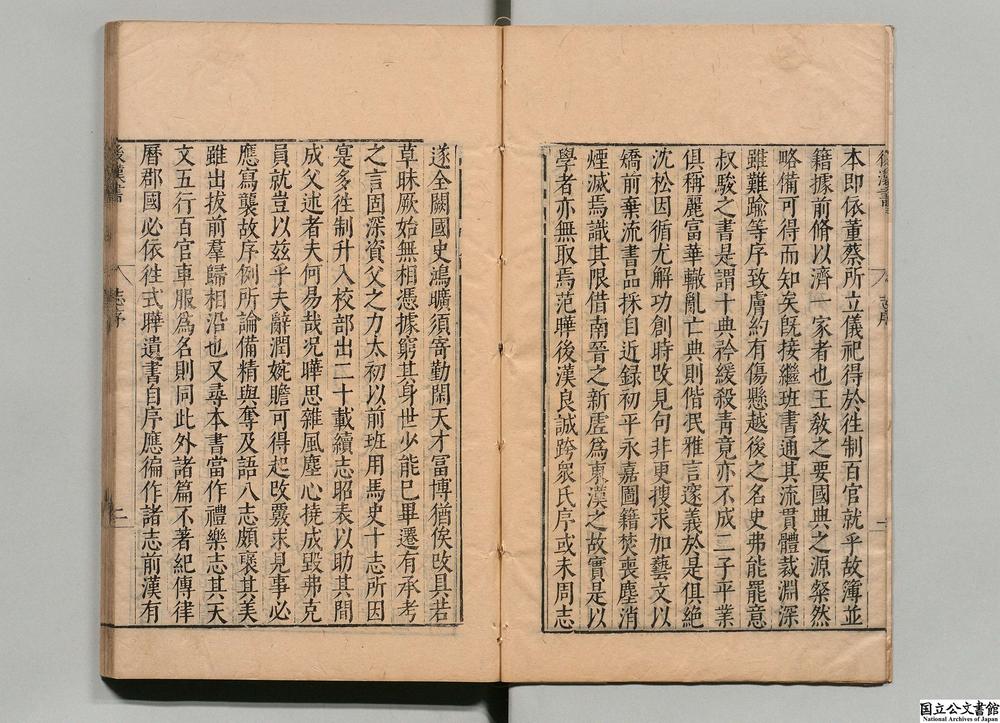 本即依董蔡所立儀祀得於徃制百官就乎故簿並
籍據前脩以濟一家者也王教之要國典之源粲然
略備可得而知矣既接繼班書通其流貫體裁淵深
雖難踰等序致膚約有傷懸越後之名史弗能罷意
叔駿之書是謂十典矜緩殺青竟亦不成二子平業
俱稱麗富華轍亂亡典則偕泯雅言邃義於是俱絶
沈松因循尤解功創時改見句非更搜求加藝文以
矯前棄流書品採自近録初平永嘉圖籍焚喪塵消
煙滅焉識其限借南晉之新虛爲東漢之故實是以
學者亦無取焉范曄後漢良誠跨衆氏序或未周志
遂全闕國史鴻曠須寄勤閑天才富博猶俟改具若
草昧厥始無相憑據窮其身世少能已畢遷有承考
之言固深資父之力太初以前班用馬史十志所因
寔多徃制升入校部出二十載續志昭表以助其間
成父述者夫何易哉況曄思雜風塵心撓成毀弗克
員就豈以兹乎夫辭潤婉贍可得起改覈求見事必
應寫襲故序例所論備精與奪及語八志頗褒其美
雖出拔前羣歸相沿也又尋本書當作禮樂志其天
文五行百官車服爲名則同此外諸篇不著紀傳律
曆郡國必依徃式曄遺書自序應徧作諸志前漢有
後漢書
志序
二
国立公文書館
National Archives of Japan